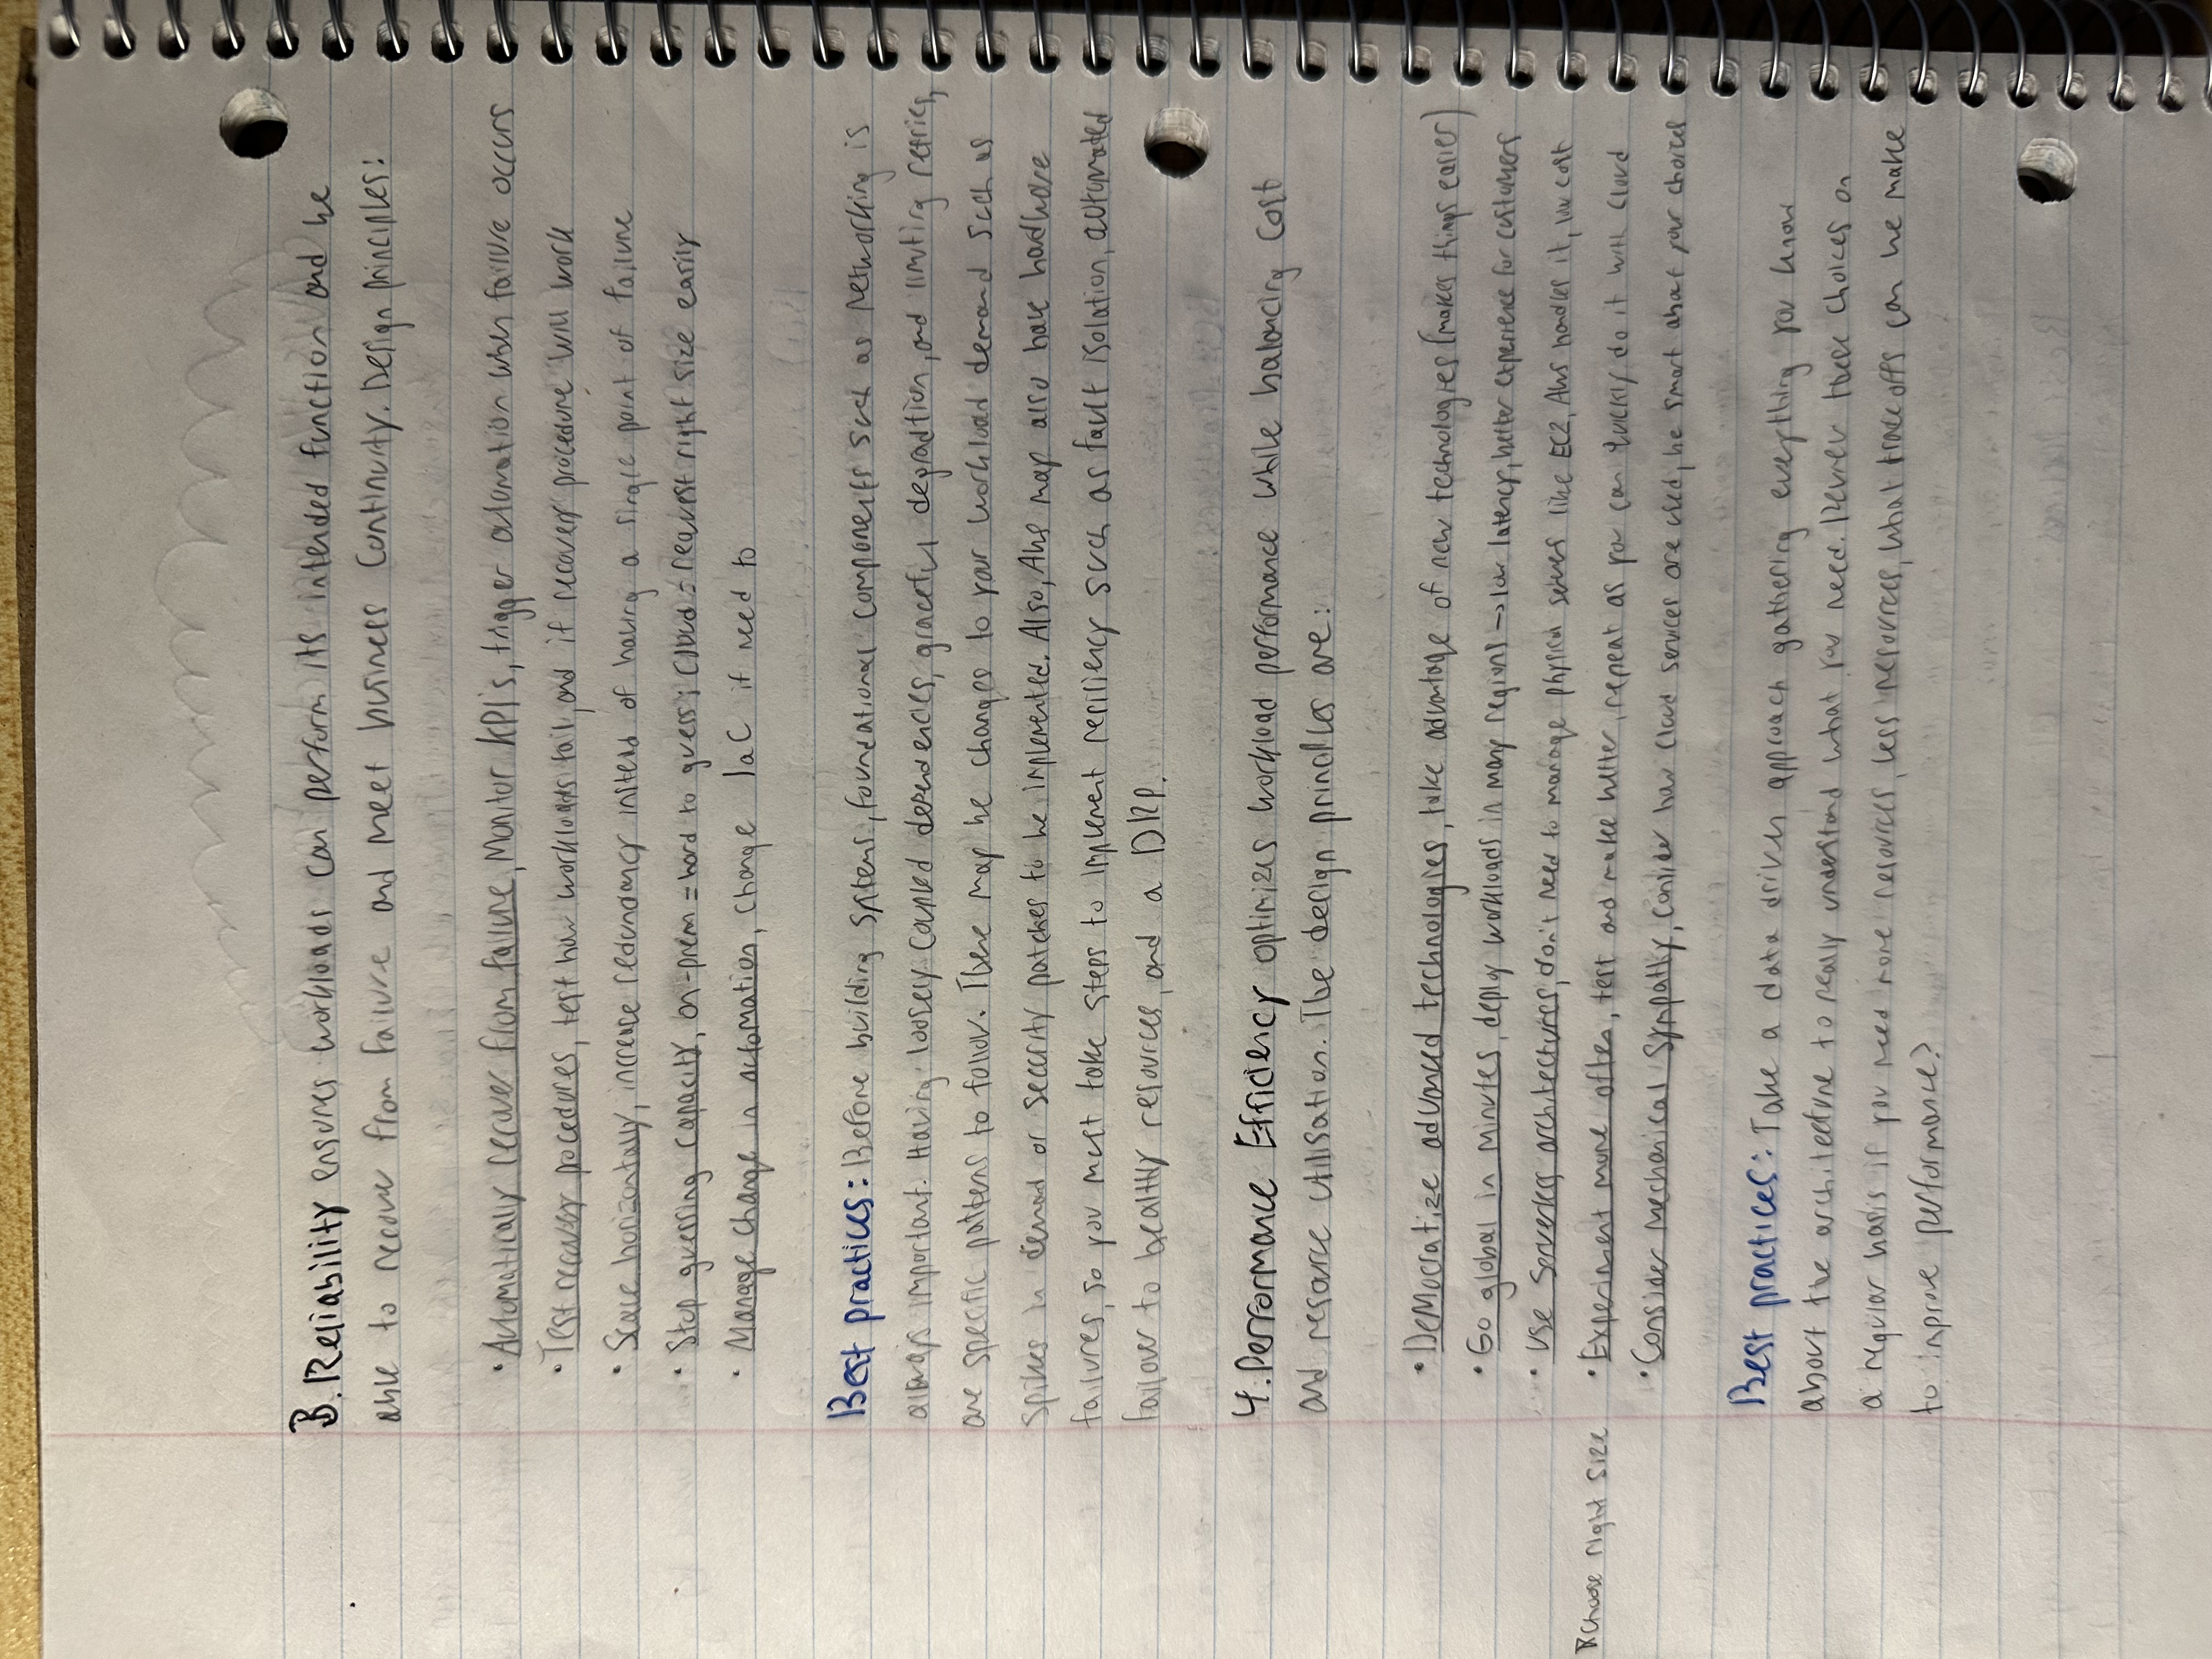 3. Reliability ensures workloads can perform its intended function and be
able to recover from failure and meet business continuity. Design principles:
• Automatically recover from failure, Monitor KPI's, trigger automation when failure occurs
• Test recovery procedures, test how workloads fail, and if recovery procedure will work
• Scale horizontally, increase redundancy instead of having a single point of failure
• Stop guessing capacity, on-prem = hard to guess; cloud = request right size easily
• Manage change in automation, change IaC if need to
Best practices: Before building systems, foundational components such as networking is
always important. Having loosely coupled dependencies, graceful degradtion, and limiting retries,
are specific patterns to follow. There may be changes to your workload demand such as
spikes in demand or security patches to be implemented. Also, AWS may also have hardware
failures, so you must take steps to implement resiliency such as fault isolation, automated
failover to healthy resources, and a DRP.
4. Performance Efficiency optimizes workload performance while balancing cost
and resource utilisation. The design principles are:
• Democratize advanced technologies, take advantage of new technologies (makes things easier)
• Go global in minutes, deploy workloads in many regions → low latency, better experience for customers
• Use serverless architectures, don't need to manage physical servers like EC2, AWS handles it, low cost
• Experiment more often, test and make better, repeat as you can quickly do it with cloud
*Choose right size
• Consider mechanical sympathy, consider how cloud services are used, be smart about your choices
Best practices: Take a data driven approach gathering everything you know
about the architecture to really understand what you need. Review these choices on
a regular basis if you need more resources, less resources, what trade offs can we make
to improve performance?